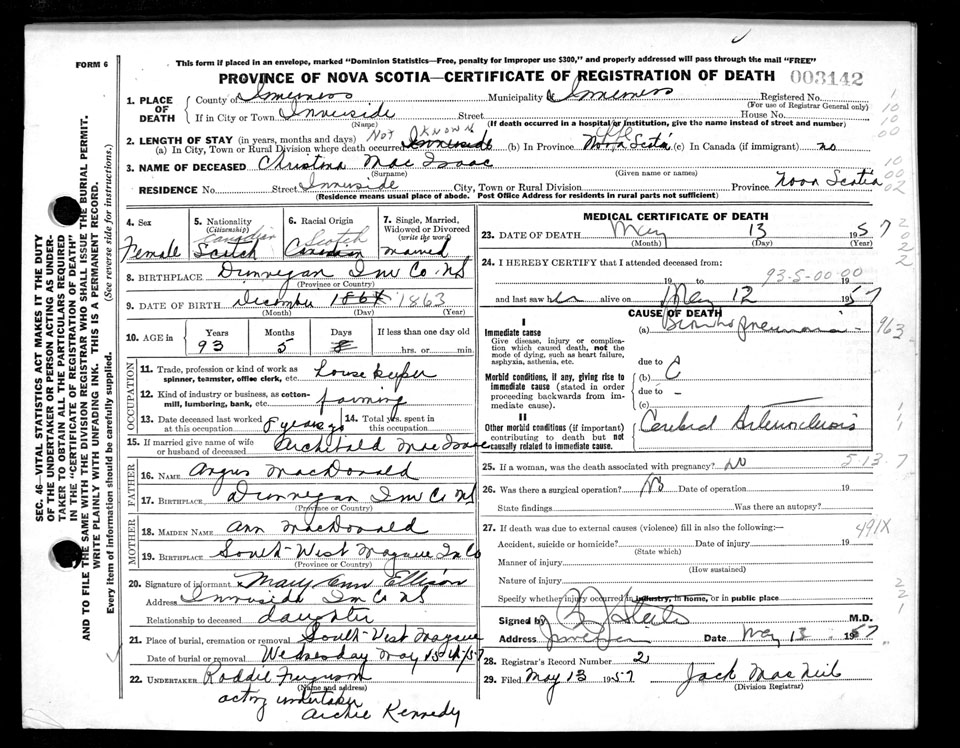 This form if placed in an envelope, marked "Dominion Statistics—Free, penalty for improper use $300," and properly addressed will pass through the mail "FREE"
FORM 6
PROVINCE OF NOVA SCOTIA—CERTIFICATE OF REGISTRATION OF DEATH 003142
SEC. 46—VITAL STATISTICS ACT MAKES IT THE DUTY
OF THE UNDERTAKER OR PERSON ACTING AS UNDER-
TAKER TO OBTAIN ALL THE PARTICULARS REQUIRED
IN THE "CERTIFICATE OF REGISTRATION OF DEATH"
AND TO FILE THE SAME WITH THE DIVISION REGISTRAR WHO SHALL ISSUE THE BURIAL PERMIT.
WRITE PLAINLY WITH UNFADING INK. THIS IS A PERMANENT RECORD.
Every item of information should be carefully supplied. (See reverse side for instructions.)
1. PLACE OF DEATH
County of Inverness Municipality Inverness Registered No.
(For use of Registrar General only)
If in City or Town Inverside Street House No.
(Name) (If death occurred in a hospital or institution, give the name instead of street and number)
2. LENGTH OF STAY (in years, months and days) NOT KNOWN Life
(a) In City, Town or Rural Division where death occurred Inverside (b) In Province Nova Scotia (c) In Canada (if immigrant) no
3. NAME OF DECEASED Christena Mac Isaac
(Surname) (Given name or names)
RESIDENCE No. Street Inverside City, Town or Rural Division Province Nova Scotia
(Residence means usual place of abode. Post Office Address for residents in rural parts not sufficient)
4. Sex
Female
5. Nationality (Citizenship)
Canadian
Scotch
6. Racial Origin
Scotch
Canadian
7. Single, Married, Widowed or Divorced (write the word)
married
8. BIRTHPLACE Dunvegan Inv Co NS
(Province or Country)
9. DATE OF BIRTH December 1864 1863
(Month) (Day) (Year)
10. AGE in Years Months Days If less than one day old
93 5 hrs. or min.
OCCUPATION
11. Trade, profession or kind of work as spinner, teamster, office clerk, etc. House keeper
12. Kind of industry or business, as cotton-mill, lumbering, bank, etc. farming
13. Date deceased last worked at this occupation 14. Total yrs. spent in this occupation
15. If married give name of wife or husband of deceased Archibald Mac Isaac
FATHER
16. Name Angus MacDonald
17. Birthplace Dunvegan Inv Co NS
(Province or Country)
MOTHER
18. MAIDEN NAME Ann MacDonald
19. BIRTHPLACE South-West Margaree Inv Co
(Province or Country)
20. Signature of informant Mary Ann Ellison
Address Inverside Inv Co NS
Relationship to deceased daughter
21. Place of burial, cremation or removal South-West Margaree
Date of burial or removal Wednesday May 15th/57
22. UNDERTAKER Roddie Ferguson
(Name and address)
acting undertaker
Archie Kennedy
MEDICAL CERTIFICATE OF DEATH
23. DATE OF DEATH May 13 1957
(Month) (Day) (Year)
24. I HEREBY CERTIFY that I attended deceased from:
19 to 19
93-5-00 00
and last saw her alive on May 12 1957
CAUSE OF DEATH
I
Immediate cause (a) Broncho pneumonia
Give disease, injury or complica-
tion which caused death, not the
mode of dying, such as heart failure,
asphyxia, asthenia, etc.
due to
Morbid conditions, if any, giving rise to (b)
immediate cause (stated in order
proceeding backwards from im-
mediate cause).
due to
(c)
II
Other morbid conditions (if important)
contributing to death but not
causally related to immediate cause.
Cerebral Arteriosclerosis
963
25. If a woman, was the death associated with pregnancy? no 5-13-7
26. Was there a surgical operation? No Date of operation 19
State findings Was there an autopsy?
27. If death was due to external causes (violence) fill in also the following:—
491X
Accident, suicide or homicide? Date of injury 19
(State which)
Manner of injury
(How sustained)
Nature of injury
Specify whether injury occurred in industry, in home, or in public place
Signed by M.D.
Address Date May 13 1957
28. Registrar's Record Number 2
29. Filed May 13 1957 Jack Mac Neil
(Division Registrar)